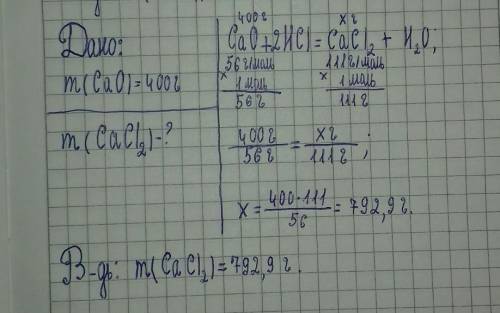 Дано:
m(CaO)=400г
m(CaCl₂)-?
400г xг
CaO+2HCl=CaCl₂+H₂O;
56г/моль 111г/моль
x 1моль x 1моль
56г 111г
400г/56г = xг/111г;
x=400·111/56=792,9г.
В-дь: m(CaCl₂)=792,9г.